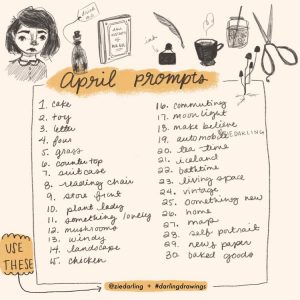 drink me
ink
April prompts
1. cake
2. toy
3. letter
4.
5. grass
6. countertop
7. suitcase
8. reading chair
9. store front
10. plant lady
11. something lovely
12. mushrooms
13. windy
14. landscape
15. chicken
16. commuting
17. moonlight
18. make believe
19. automobile
20. tea time
21. iceland
22. bathtime
23. living space
24. vintage
25. something new
26. home
27. map
28. self portrait
29. news paper
30. baked goods
USE
THESE
@ziedarling + #darlingdrawings